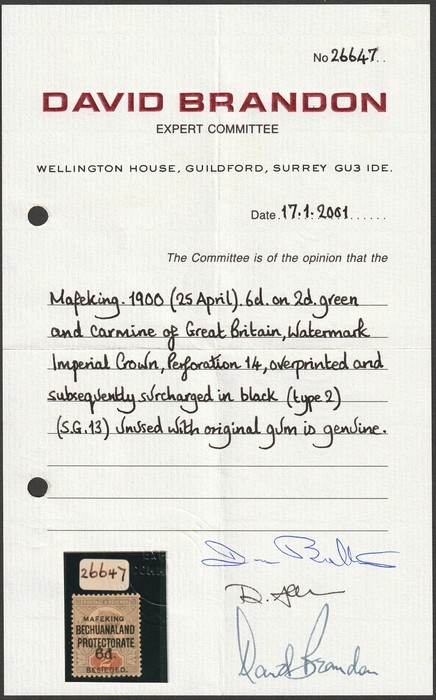 No 26647..
DAVID BRANDON
EXPERT COMMITTEE
WELLINGTON HOUSE, GUILDFORD, SURREY GU3 1DE.
Date.17.1.2001......
The Committee is of the opinion that the
Mafeking. 1900 (25 April). 6d. on 2d. green
and carmine of Great Britain, Watermark
Imperial Crown, Perforation 14, overprinted and
subsequently surcharged in black (type 2)
(S.G.13) Unused with original gum is genuine.
26647
POSTAGE & REVENUE
MAFEKING
BECHUANALAND
PROTECTORATE
6d.
BESIEGED.
David Brandon